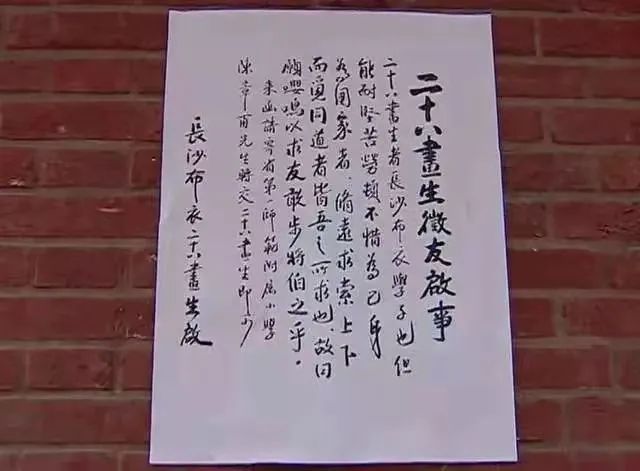 二十八畫生徵友啟事
二十八畫生者長沙布衣學子也但
能耐堅苦勞頓不惜為己身
為國家者.脩遠求索上下
而覓同道者皆吾之所求也.故曰
願嚶鳴以求友敢步將伯之乎。
來函請寄省第一師範附屬小學
陳章甫先生轉交二十八畫生即可
長沙布衣二十八畫生啟